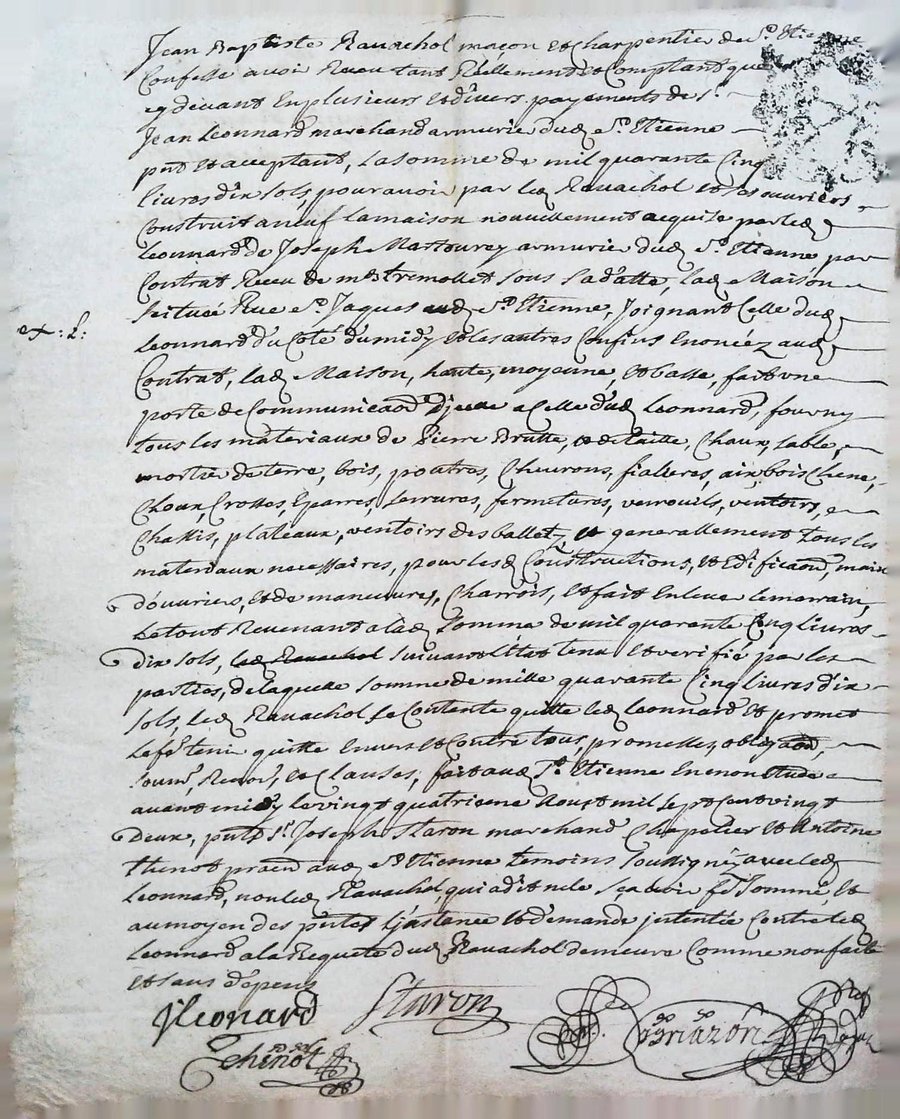 Jean Baptiste Ravachol maçon et charpentier de st Etienne
Confesse avoir Receu tant Réellement et Comptant que
cy devant En plusieurs et divers payements de sr
Jean Leonnard marchand armurié dud st Etienne
pnt et acceptant, La somme de mil quarante Cinq
livres dix sols, pour avoir par led Ravachol et ses ouvriers
Construit a neuf la maison nouvellement acquise par led
Leonnard de Joseph Martourey armurié dud st Etienne, par
Contrat Receu de me tremollet sous sa datte, lad Maison
scituée Rue st Jaques aud st Etienne, Joignant Celle dud
ex: L:
Leonnard du Coté du midy et les autres Confins Enoncéz aud
Contrat, lad Maison, haute, moyenne, et basse, fait une
porte de Communicaon a Celle dud Leonnard, fourny
tous les materiaux de Pierre Brutte, et de taille, Chaux, sable,
mortié de terre, bois, poutres, Chevrons, fialieres, aix bois Chene,
Choux, Crosses, Eparres, serrures, fermetures, verrouils, ventoirs, e
Chassis, plateaux, ventoirs des ballet, et generallement tous les
materiaux necessaires, pour lesd Constructions, et Edificaon, main
d'ouvriers, et de maneuvre, Charrois, et fait Enleve le marrain,
Le tout Revenant a lad somme de mil quarante Cinq livres
dix sols, led Ravachol suivant l'Etat tenu et verifié par les
parties, de laquelle somme de mille quarante Cinq livres dix
sols, led Ravachol se Contente quitte led Leonnard et promet
Le fe tenir quitte Envers et Contre tous, promesses, obligaon,
soumn, Renon, et Clauses, fait aud st Etienne En mon Etude
avant midy le vingt quatrieme Aoust mil sept Cent vingt
Deux, pnts sr Joseph Staron marchand Chapelier et Antoine
thenot praen aud st Etienne temoins soussignéz avec led
Leonnard, non led Ravachol, qui a dit ne le sçavoir fe sommé, et
au moyen des pntes l'instance et demande intentée Contre led
Leonnard a la Requete dud Ravachol demeure Comme non faite
et sans depens
J Leonard Staron
thenot